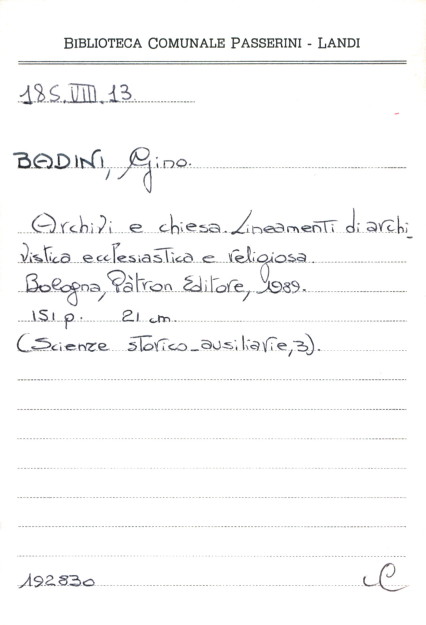 BIBLIOTECA COMUNALE PASSERINI - LANDI
185.VIII.13
BADINI, Gino.
Archivi e chiesa. Lineamenti di archi_
vistica ecclesiastica e religiosa.
Bologna, Pàtron Editore, 1989.
151 p. 21 cm.
(Scienze storico_ausiliarie, 3).
192830
C